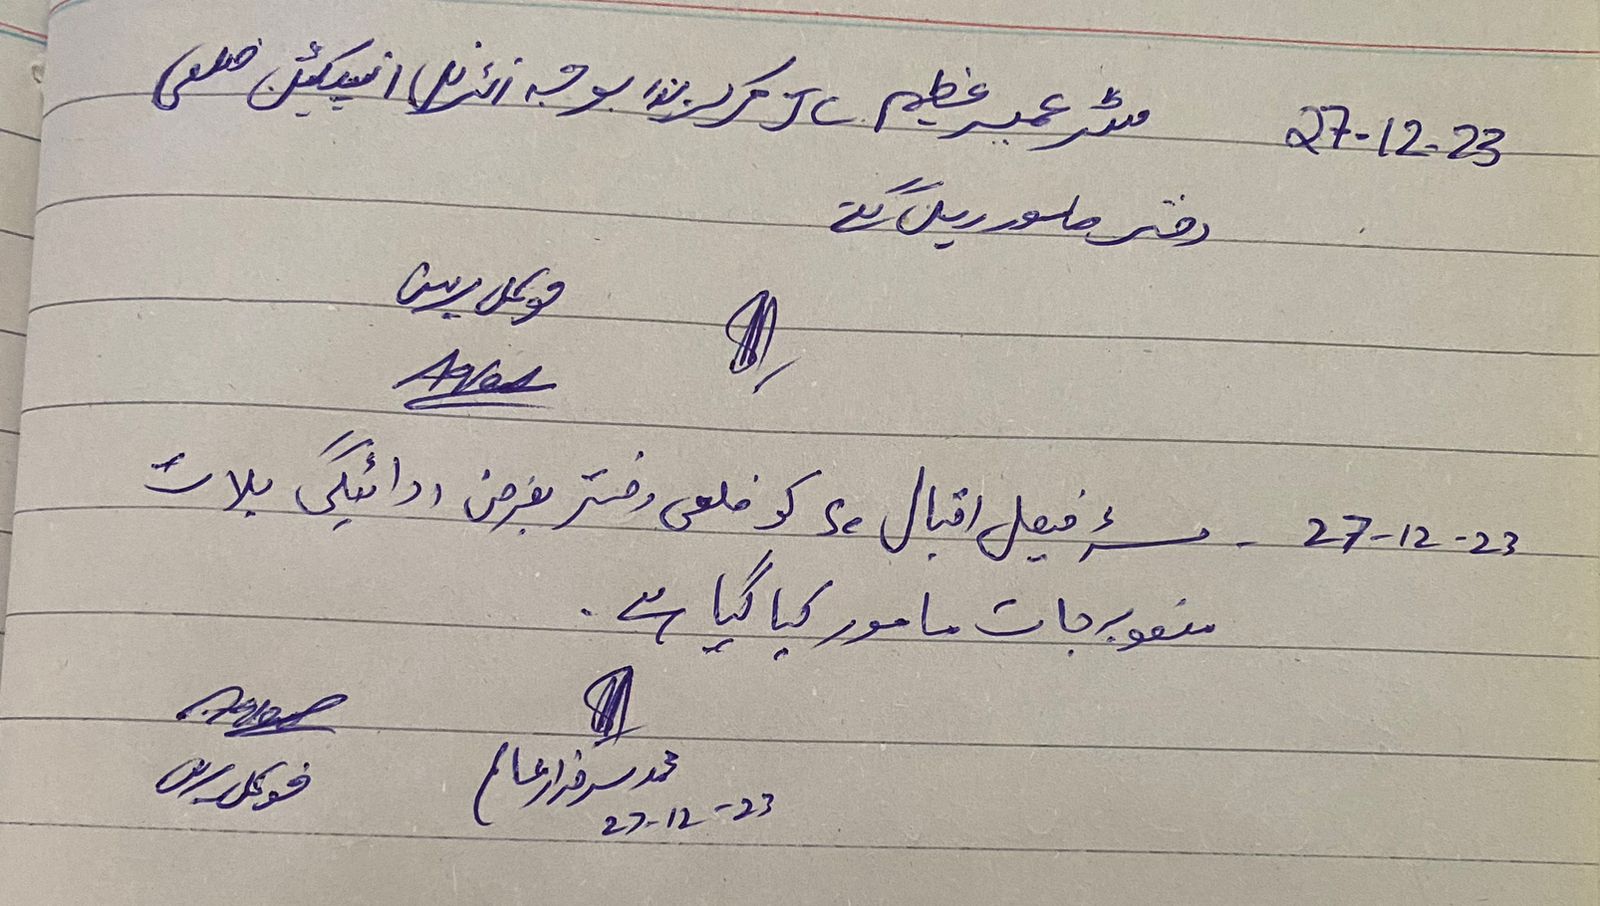 27-12-23 مسٹر عمیر عظیم JC مرکز ہذا بوجہ انٹرنل انسپکشن ضلعی
دفتر مامور رہیں گے
فوکل پرسن
27-12-23 - مسٹر فیصل اقبال SC کو ضلعی دفتر بغرض ادائیگی بلات
منصوبہ جات مامور کیا گیا ہے .
محمد سرفراز عالم
فوکل پرسن
27-12-23